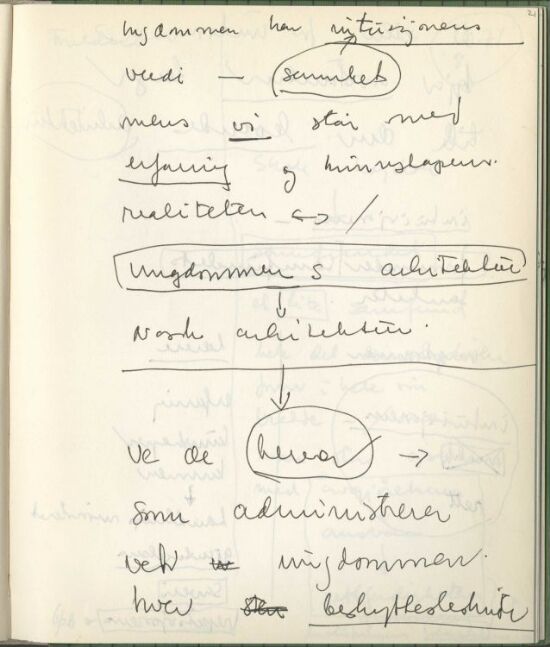 ungdommen har intuisjonens
verdi — sannhet
mens vi står med
erfaring og kunnskapens
realiteten ↔ /
ungdommens arkitektur
↓
norsk arkitektur.
↓
ve de herrer →
som administrerer
vekk ungdommen.
hver